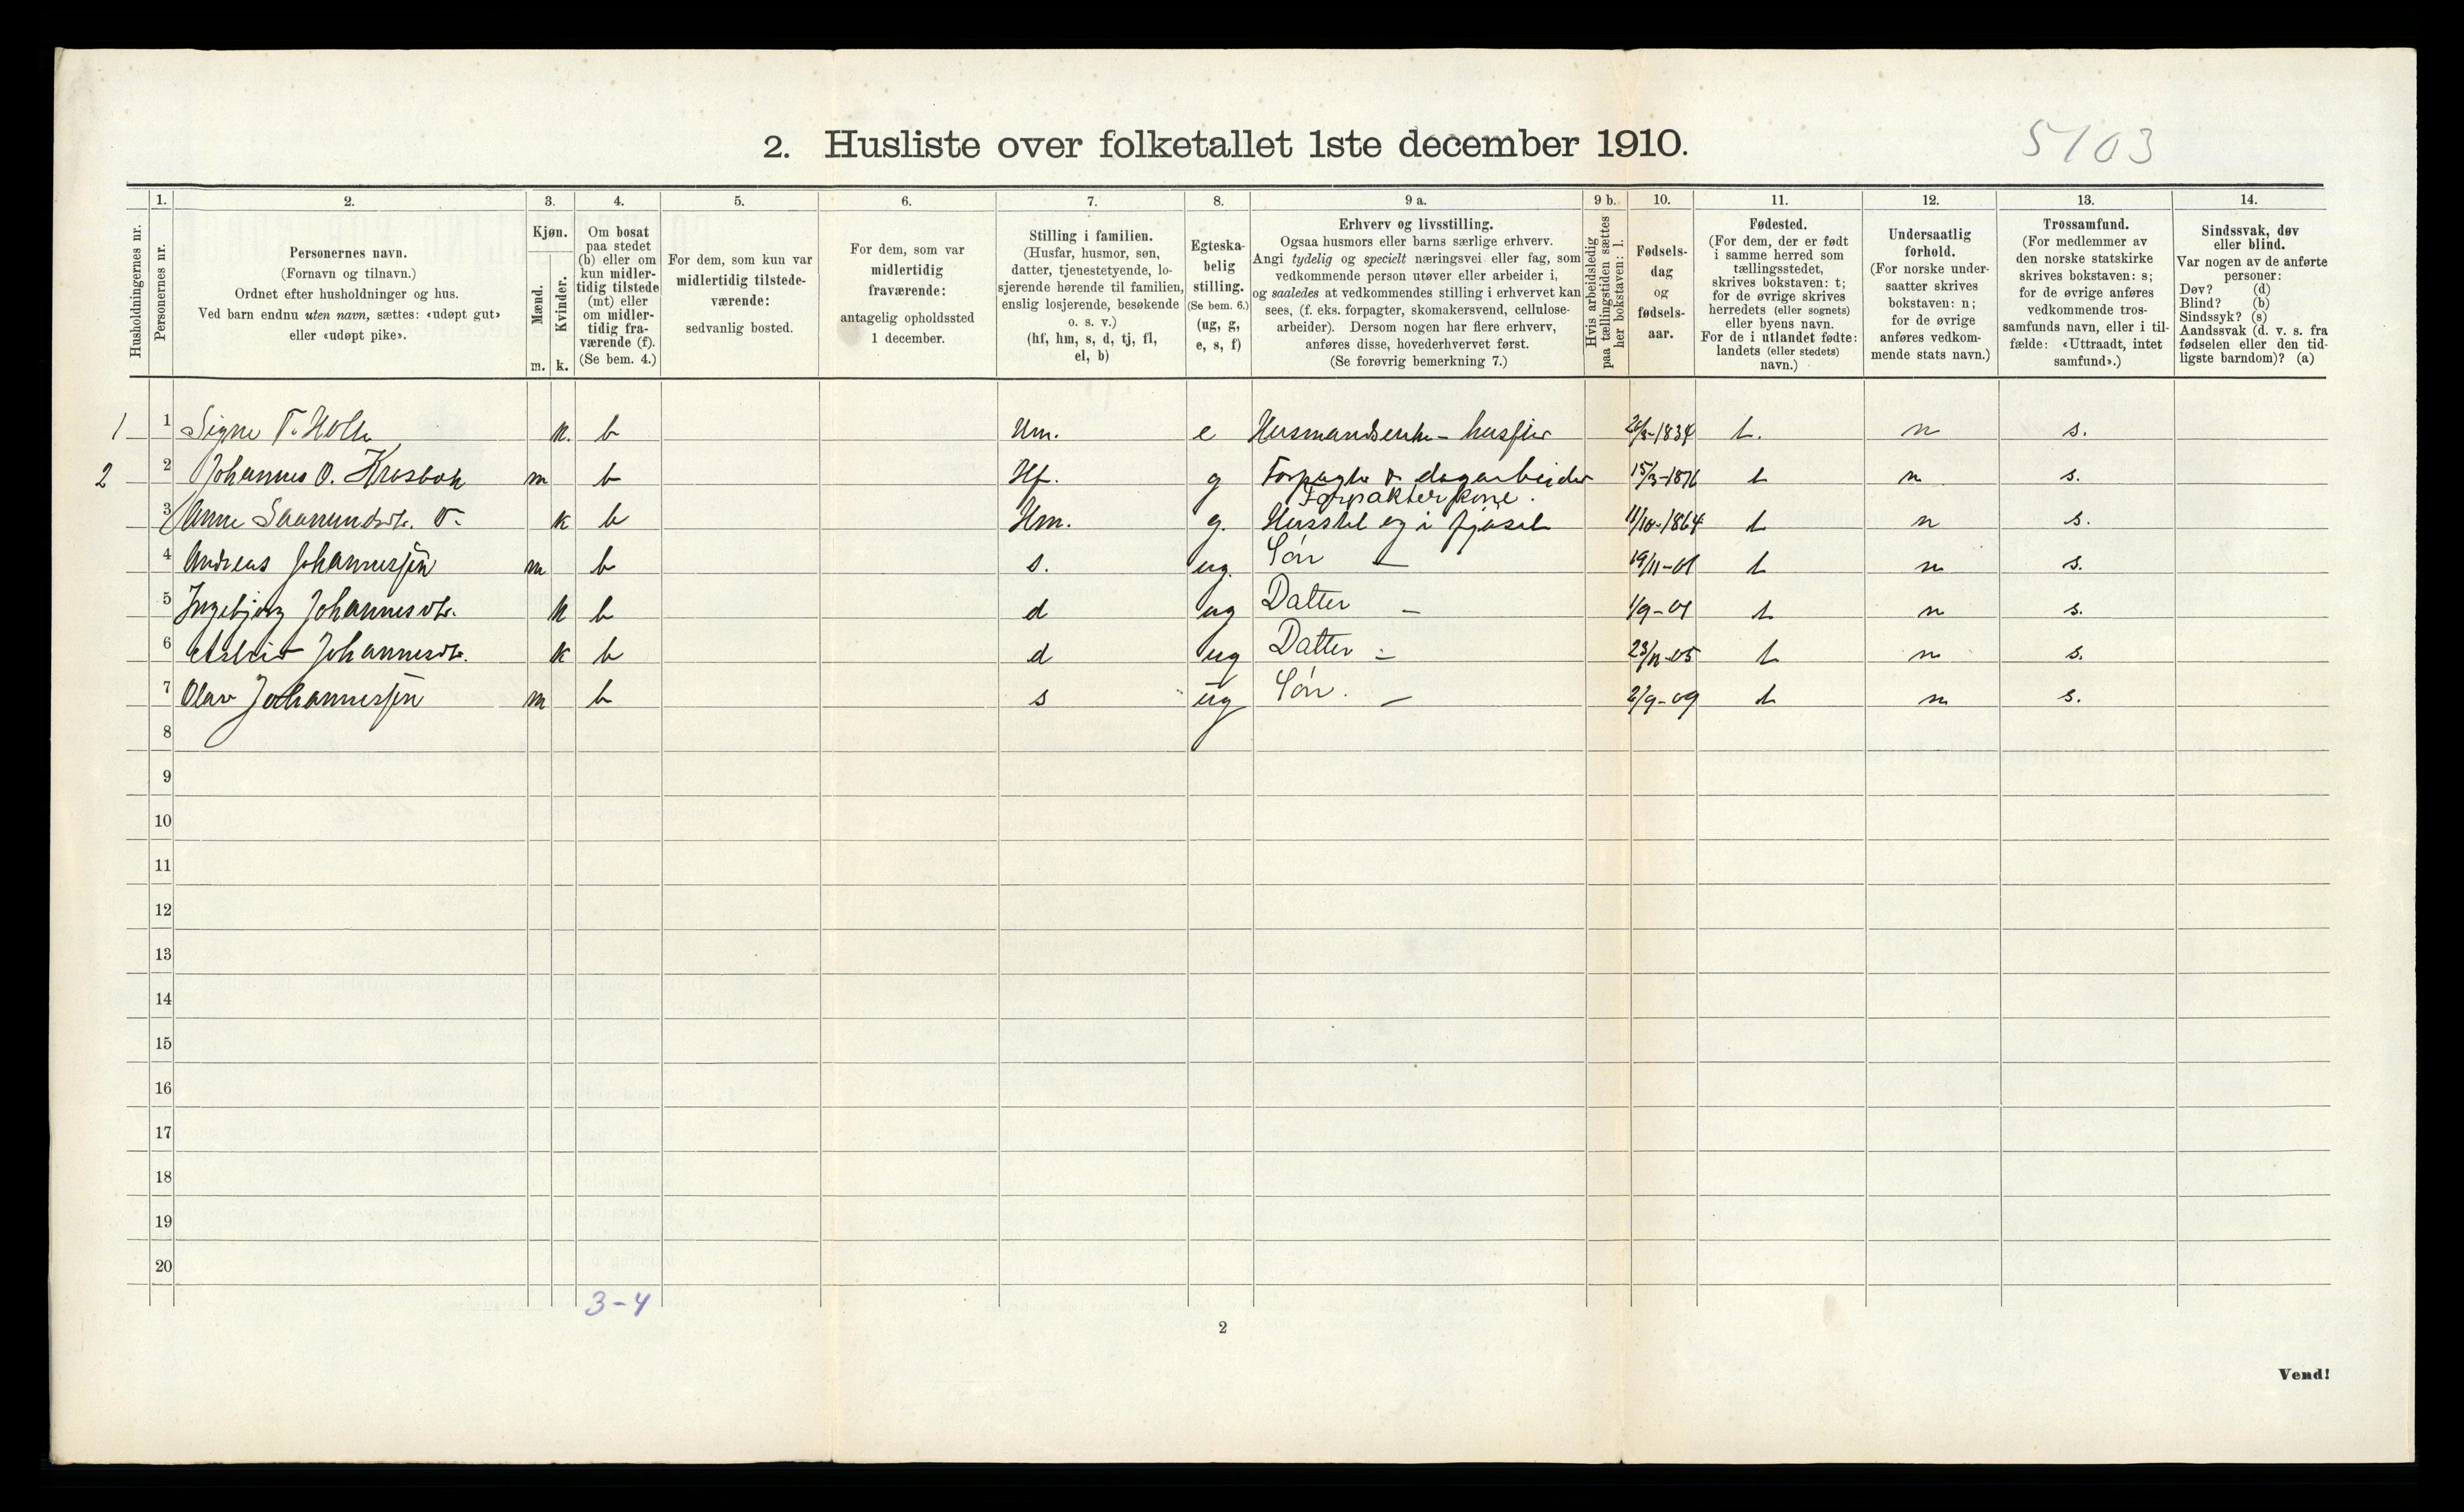 2. Husliste over folketallet 1ste december 1910.
5103
Husholdningernes nr.
1.
Personernes nr.
2.
Personernes navn.
(Fornavn og tilnavn.)
Ordnet efter husholdninger og hus.
Ved barn endnu uten navn, sættes: «udøpt gut»
eller «udøpt pike».
3.
Kjøn.
Mænd.
m.
Kvinder.
k.
4.
Om bosat
paa stedet
(b) eller om
kun midler-
tidig tilstede
(mt) eller
om midler-
tidig fra-
værende (f).
(Se bem. 4.)
5.
For dem, som kun var
midlertidig tilstede-
værende:
sedvanlig bosted.
6.
For dem, som var
midlertidig
fraværende:
antagelig opholdssted
1 december.
7.
Stilling i familien.
(Husfar, husmor, søn,
datter, tjenestetyende, lo-
sjerende hørende til familien,
enslig losjerende, besøkende
o. s. v.)
(hf, hm, s, d, tj, fl,
el, b)
8.
Egteska-
belig
stilling.
(Se bem. 6.)
(ug, g,
e, s, f)
9 a.
Erhverv og livsstilling.
Ogsaa husmors eller barns særlige erhverv.
Angi tydelig og specielt næringsvei eller fag, som
vedkommende person utøver eller arbeider i,
og saaledes at vedkommendes stilling i erhvervet kan
sees, (f. eks. forpagter, skomakersvend, cellulose-
arbeider). Dersom nogen har flere erhverv,
anføres disse, hovederhvervet først.
(Se forøvrig bemerkning 7.)
9 b.
Hvis arbeidsledig
paa tællingstiden sættes
her bokstaven: l.
10.
Fødsels-
dag
og
fødsels-
aar.
11.
Fødested.
(For dem, der er født
i samme herred som
tællingsstedet,
skrives bokstaven: t;
for de øvrige skrives
herredets (eller sognets)
eller byens navn.
For de i utlandet fødte:
landets (eller stedets)
navn.)
12.
Undersaatlig
forhold.
(For norske under-
saatter skrives
bokstaven: n;
for de øvrige
anføres vedkom-
mende stats navn.)
13.
Trossamfund.
(For medlemmer av
den norske statskirke
skrives bokstaven: s;
for de øvrige anføres
vedkommende tros-
samfunds navn, eller i til-
fælde: «Uttraadt, intet
samfund».)
14.
Sindssvak, døv
eller blind.
Var nogen av de anførte
personer:
Døv? (d)
Blind? (b)
Sindssyk? (s)
Aandssvak (d. v. s. fra
fødselen eller den tid-
ligste barndom)? (a)
1 1 Signe T. k. b Hm. e 1834 t. n s.
2 2 Johannes O. m b Hf. g & dagarbeider 15/3-1876 t n s.
Forpakterkone.
3 Anne k b Hm. g. Husstel og i fjøset 11/10-1864 t n s.
4 Andreas Johannessøn m b s. ug. Søn — 19/11-01 t n s.
5 Ingebjørg Johannesdtr. k b d ug Datter — 1/9-01 t n s.
6 Astrid Johannesdtr. k b d ug Datter — 23/11-05 t n s.
7 Olav Johannessøn m b s ug Søn. — 2/9-09 t n s.
8
9
10
11
12
13
14
15
16
17
18
19
20
3-4
2
Vend!